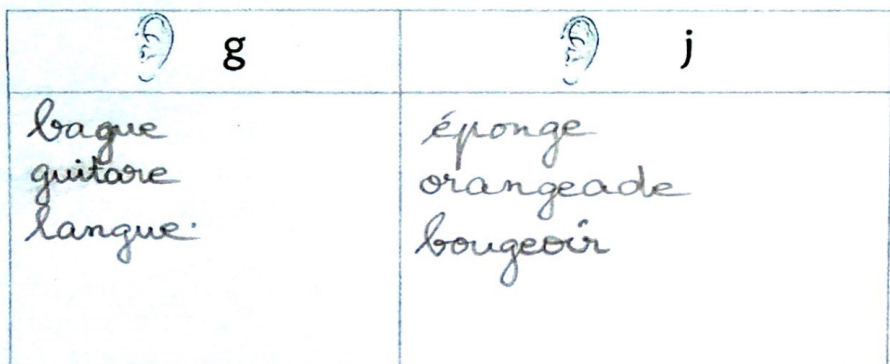 g
j
bague
guitare
langue.
éponge
orangeade
bougeoir